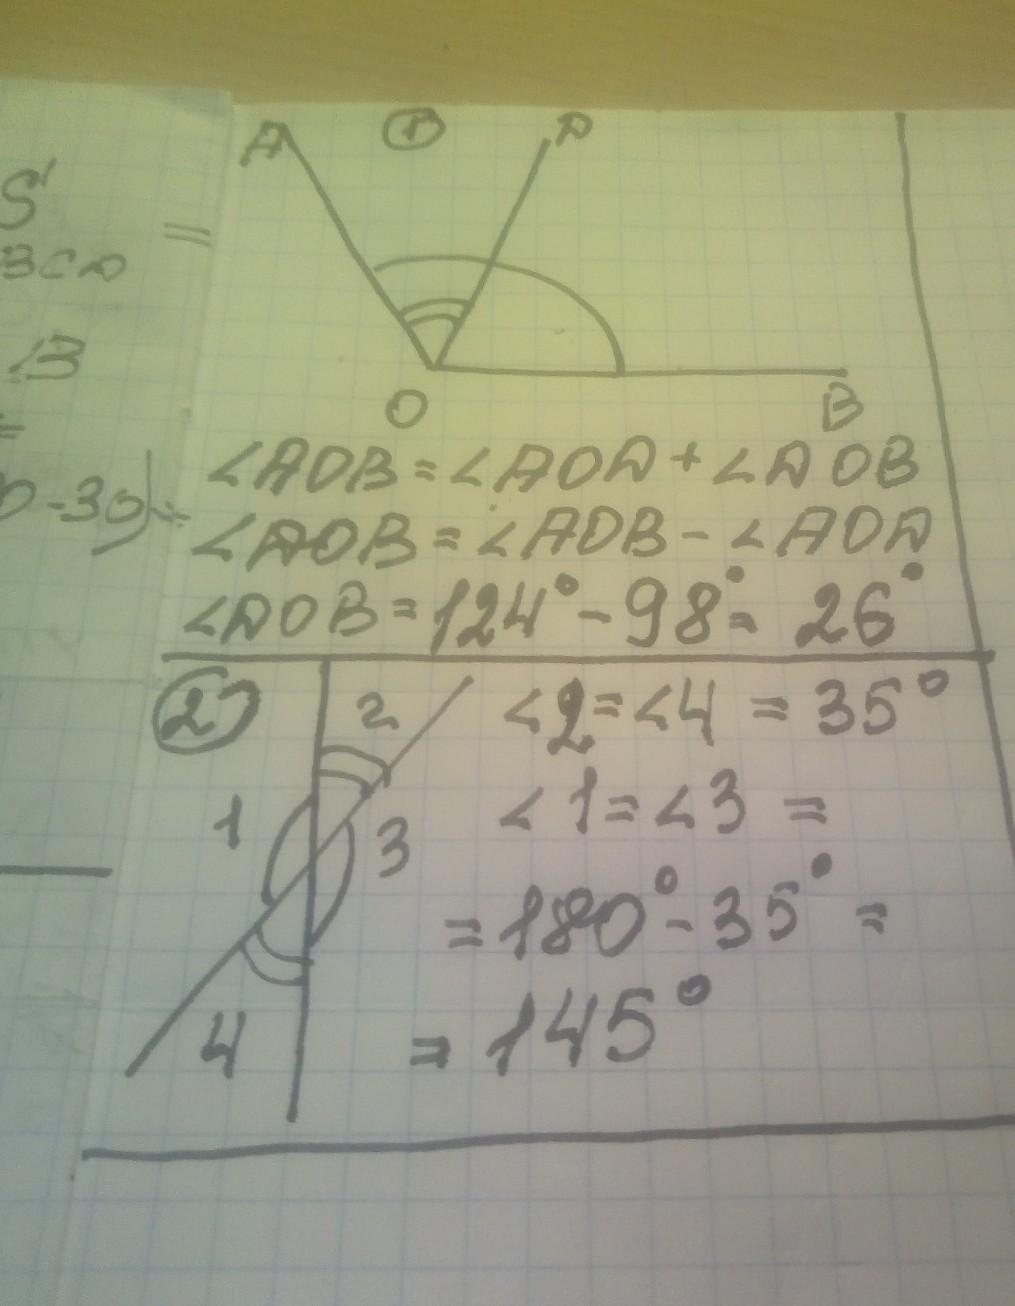 S
=
BCD
<3
=
0-30)÷
A
①
D
O
B
∠AOB = ∠AOD + ∠DOB
∠DOB = ∠AOB - ∠AOD
∠DOB = 124° - 98° = 26°
②
2
∠2 = ∠4 = 35°
1
3
∠1 = ∠3 =
= 180° - 35° =
4
= 145°